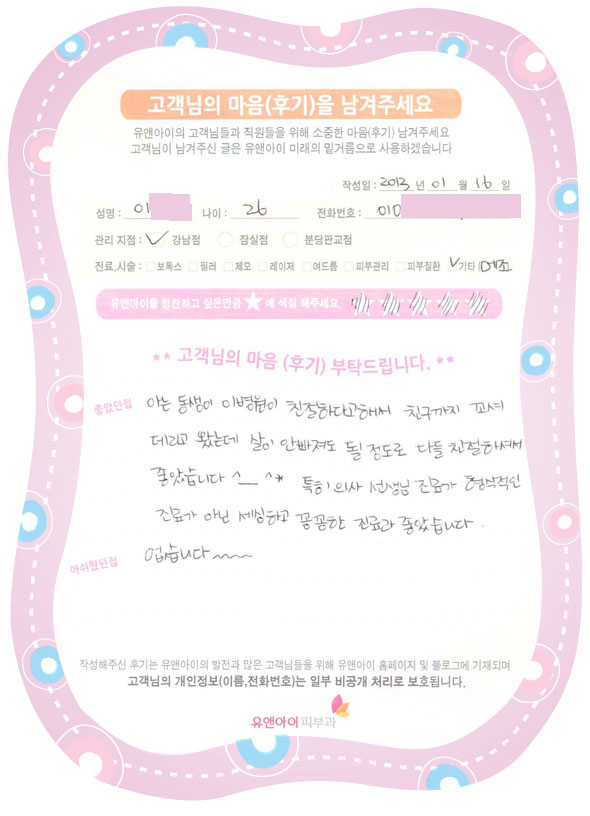 고객님의 마음(후기)을 남겨주세요
유앤아이의 고객님들과 직원들을 위해 소중한 마음(후기) 남겨주세요
고객님이 남겨주신 글은 유앤아이 미래의 밑거름으로 사용하겠습니다
작성일 : 2013 년 01 월 16 일
성명 : 이 나이 : 26 전화번호 : 010
관리 지점 : 강남점 잠실점 분당판교점
진료,시술 : 보톡스 필러 제모 레이저 여드름 피부관리 피부질환 기타 (
유앤아이를 칭찬하고 싶은만큼 ★ 에 색칠 해주세요. ★★★★★
** 고객님의 마음 (후기) 부탁드립니다. **
좋았던점 아는 동생이 이병원이 친절하다고해서 친구까지 꼬셔
데리고 왔는데 살이 안빠져도 될 정도로 다들 친절하셔서
좋았습니다 ^__^* 특히 의사 선생님 진료가 형식적인
진료가 아닌 세심하고 꼼꼼한 진료라 좋았습니다.
아쉬웠던점 없습니다~~~~
작성해주신 후기는 유앤아이의 발전과 많은 고객님들을 위해 유앤아이 홈페이지 및 블로그에 기재되며
고객님의 개인정보(이름,전화번호)는 일부 비공개 처리로 보호됩니다.
유앤아이 피부과